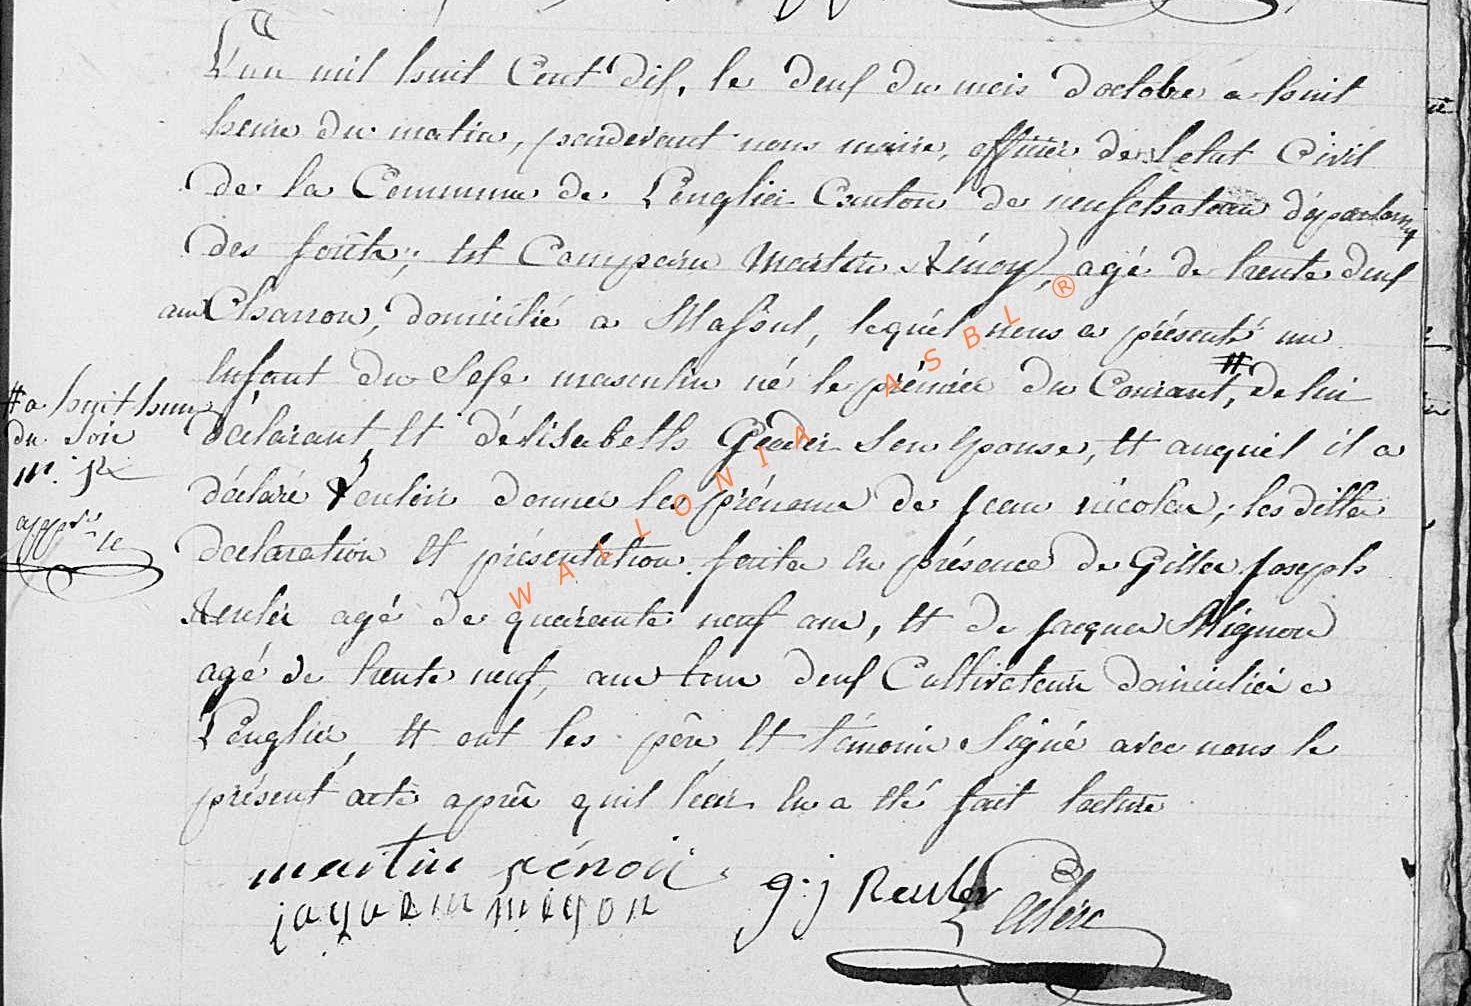 L'an mil huit Cent dix, le deux du mois d'octobre a huit
heure du matin, pardevant nous maire, officier de Letat Civil
de la Commune de Longlier Canton de neufchateau départem
des forêts, est Comparu Martin Rénoy, agé de trente deux
ans Charron, domicilié a Massul, lequel nous a présenté un
Enfant du Sexe masculin né le prémier du Courant, # de lui
déclarant Et délisabeth Son Epouse, Et auquel il a
déclaré Vouloir donner les prénoms de jean nicolas, les dittes
declaration Et présentation faites En présence de Gilles joseph
Reuler agé de quarante neuf ans, Et de jacques Mignon
agé de trente neuf, ans tous deux Cultivateurs domiciliés a
Longlier, Et ont les père Et témoins Signé avec nous le
présent acte après quil leur En a été fait lecture
# a huit heures
du Soir
m. R
approuvé
martin rénoii
jaquem migon
g. j Reuler
Leclerc
WALLONIA ASBL ®